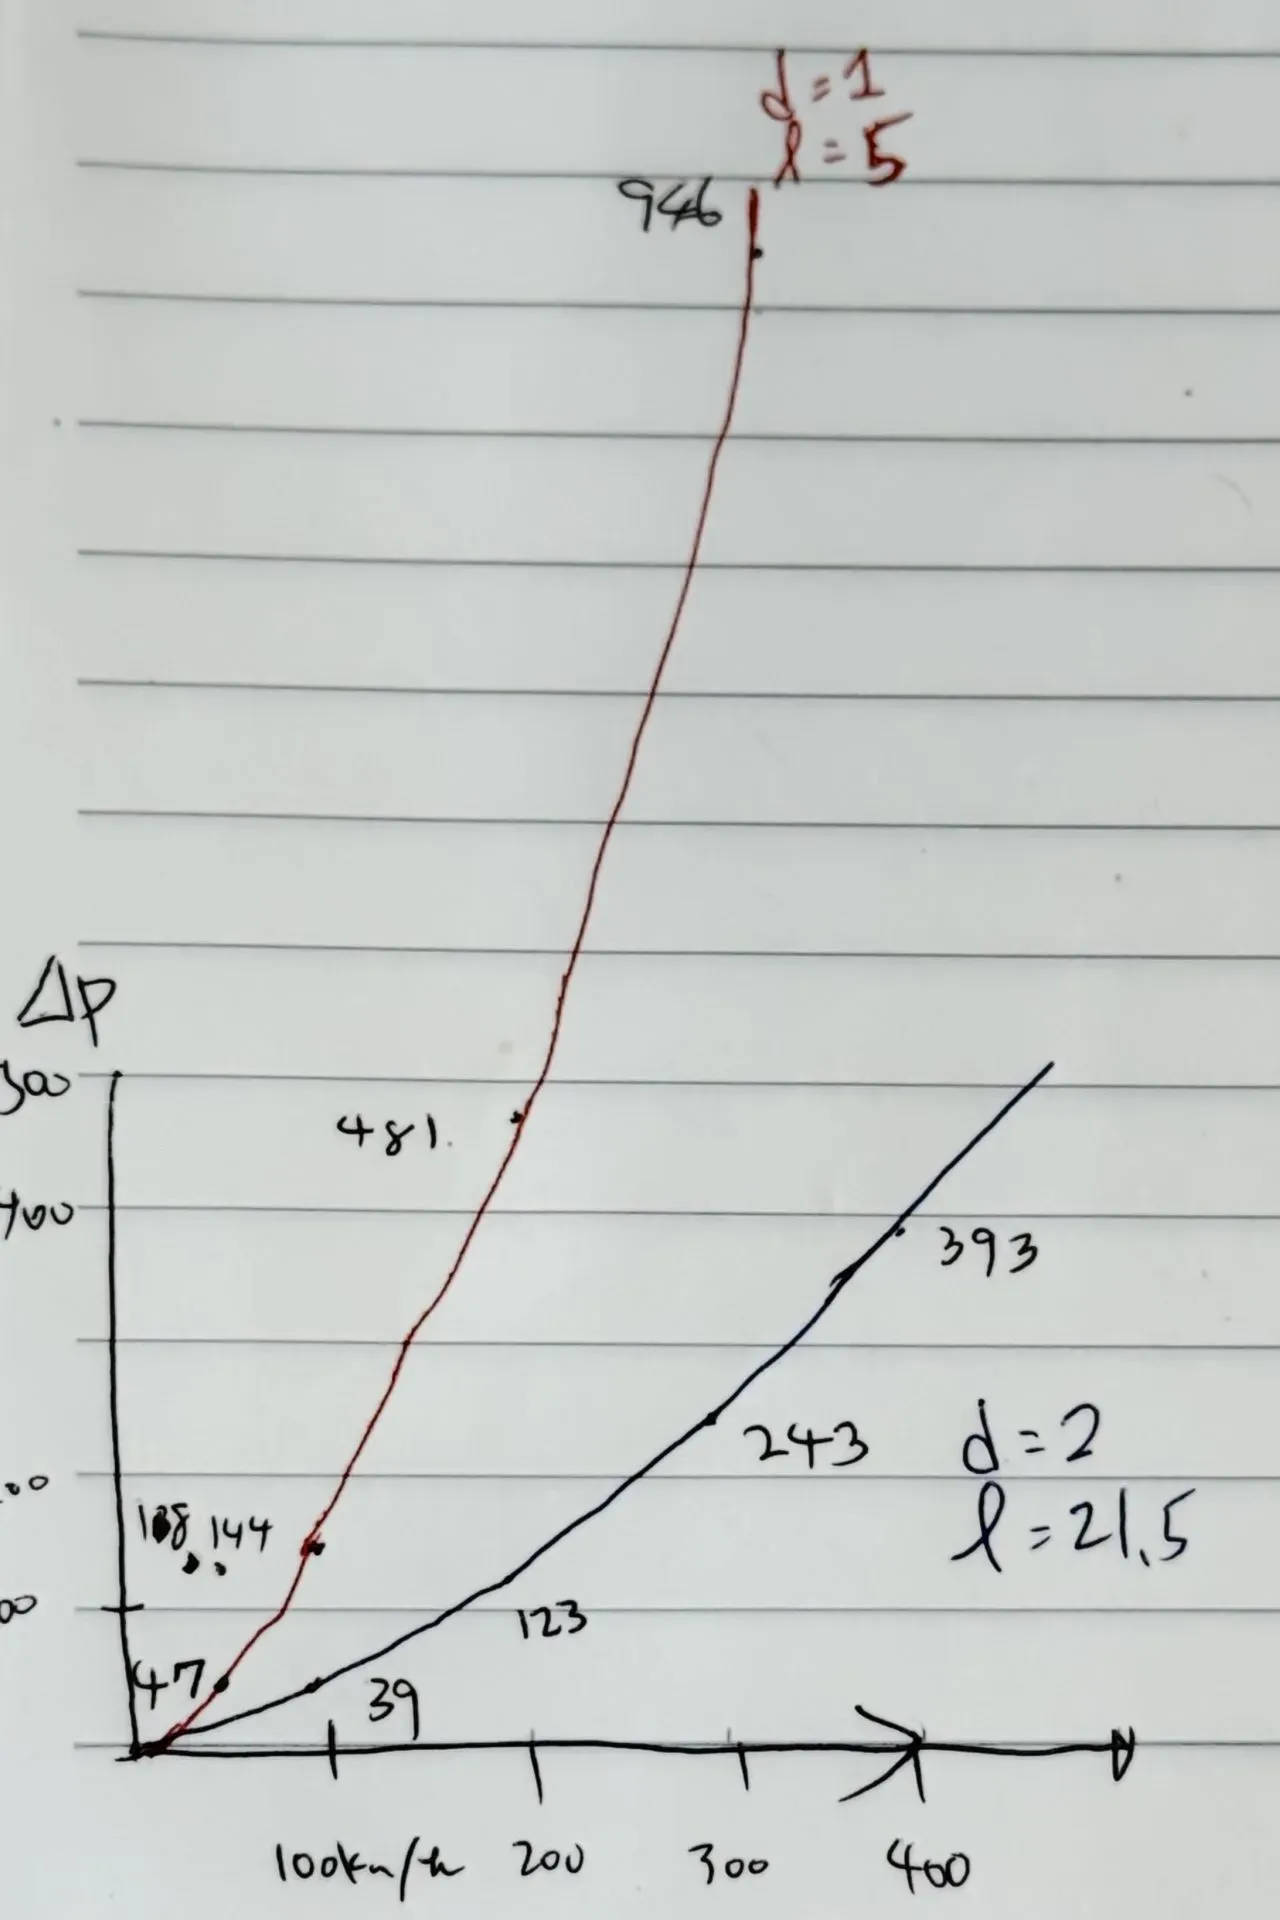 d = 1
l = 5
946
Δp
500
481.
400
393
243
d = 2
l = 21.5
144
123
47
39
100km/h 200 300 400